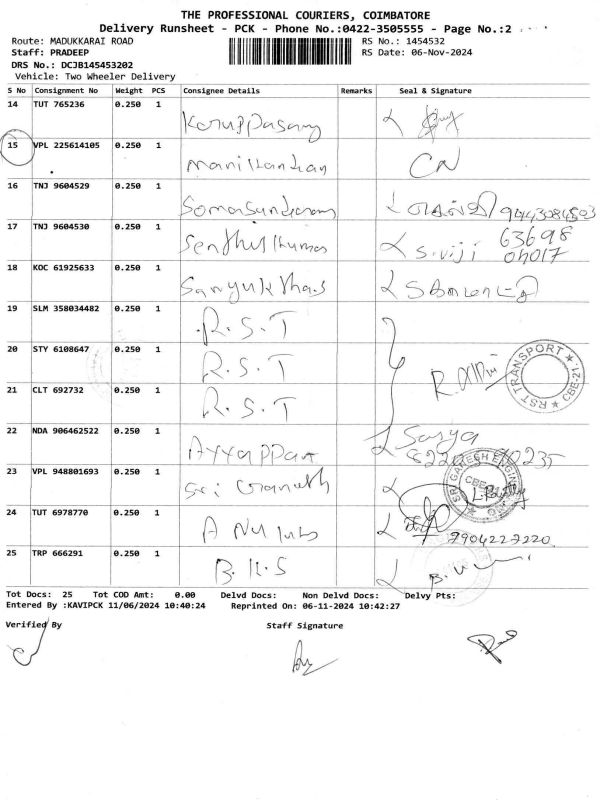 THE PROFESSIONAL COURIERS, COIMBATORE
Delivery Runsheet - PCK - Phone No.:0422-3505555 - Page No.:2
Route: MADUKKARAI ROAD
RS No.: 1454532
Staff: PRADEEP
RS Date: 06-Nov-2024
DRS No.: DCJB145453202
Vehicle: Two Wheeler Delivery
S No Consignment No Weight PCS Consignee Details Remarks Seal & Signature
14 TUT 765236 0.250 1 Karuppasamy
15 VPL 225614105 0.250 1 Manikandan CN
16 TNJ 9604529 0.250 1 Somasundaram 9443084503
17 TNJ 9604530 0.250 1 Senthilkumar S. Viji 63698
18 KOC 61925633 0.250 1
19 SLM 358034482 0.250 1 R.S.T
20 STY 6108647 0.250 1 R.S.T
RST TRANSPORT CBE-21.
21 CLT 692732 0.250 1 R.S.T
22 NDA 906462522 0.250 1 Ayyappan
23 VPL 948801693 0.250 1 Sri Ganesh
SRI GANESH ENGINEERING CBE
24 TUT 6978770 0.250 1 7904227220
25 TRP 666291 0.250 1 B.K.S
Tot Docs: 25 Tot COD Amt: 0.00 Delvd Docs: Non Delvd Docs: Delvy Pts:
Entered By :KAVIPCK 11/06/2024 10:40:24 Reprinted On: 06-11-2024 10:42:27
Verified By Staff Signature